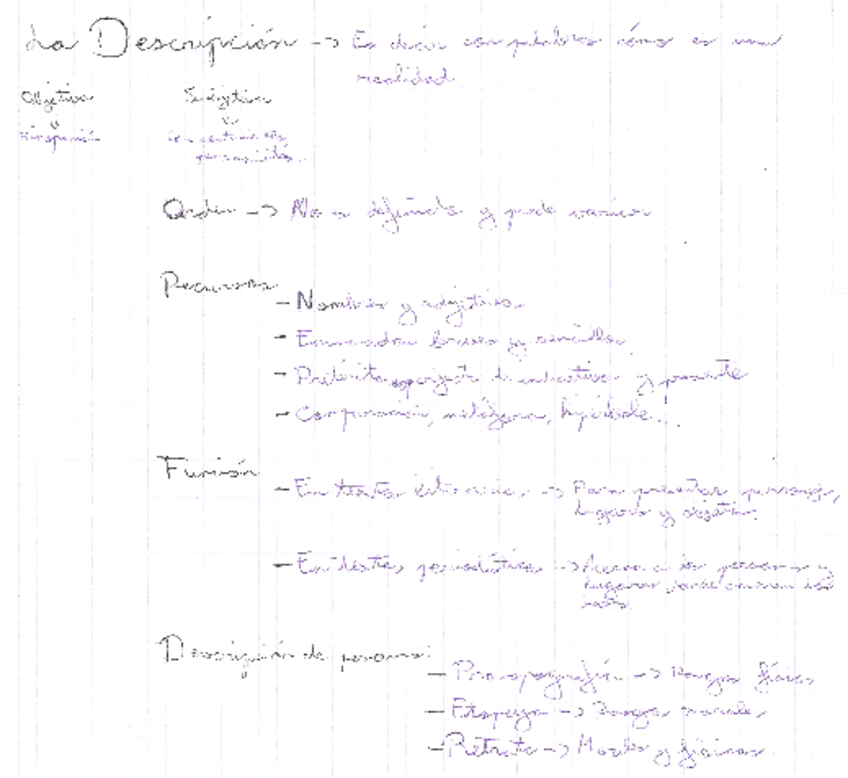 La Descripción -> Es decir con palabras cómo es una
realidad.
Objetiva Subjetiva
Sin opinión Con sentimientos,
Orden -> No es definido y puede variar
Recursos
- Nombres y adjetivos
- Enunciados breves y sencillos.
- Pretérito imperfecto de indicativo y presente
- Comparación, metáfora, hipérbole...
Función
- En textos literarios -> Para presentar personajes,
lugares y objetos.
- En textos periodísticos -> Acerca a las personas y
lugares donde ocurren los
Descripción de personas:
- Prosopografía -> Rasgos físicos
- Etopeya -> Rasgos morales
- Retrato -> Morales y físicos.